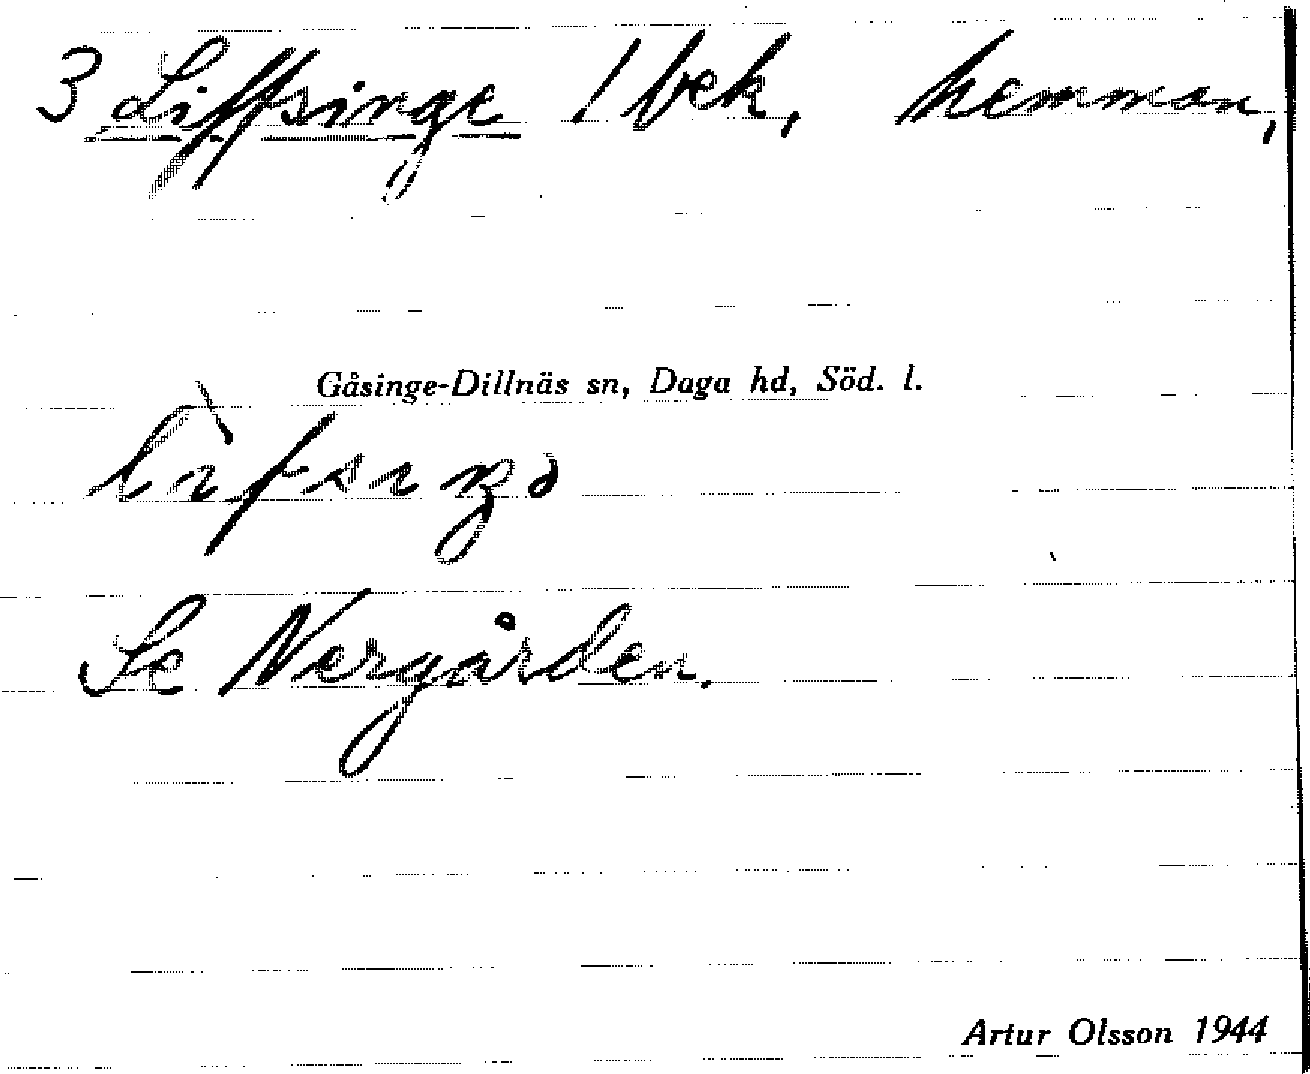 3 Liffsinge 1 bek, hemman,
Gåsinge-Dillnäs sn, Daga hd, Söd. l.
Se Nergården.
Artur Olsson 1944